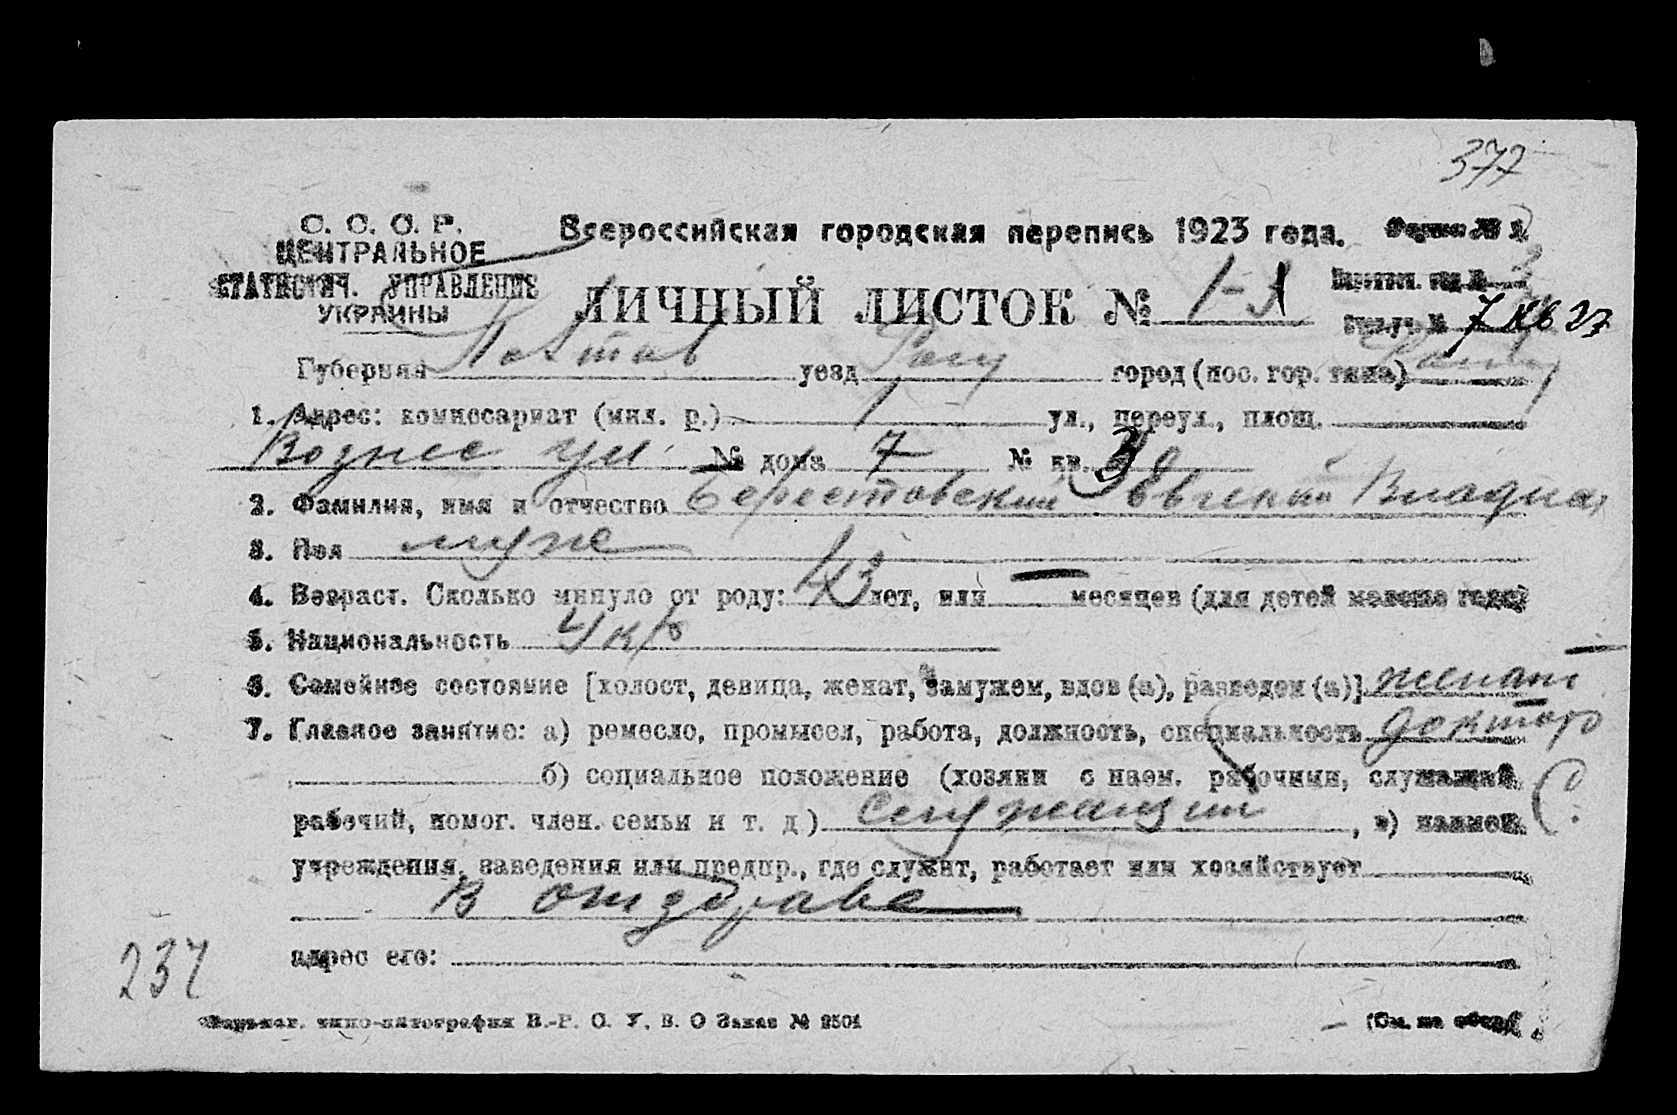 377
С. С. С. Р.
ЦЕНТРАЛЬНОЕ
СТАТИСТИЧ. УПРАВЛЕНИЕ
УКРАИНЫ
Всероссийская городская перепись 1923 года. Форма № 2
ЛИЧНЫЙ ЛИСТОК № 1-3
7 кв 27
Губерния Полтав уезд город (пос. гор. типа)
1. Адрес: комиссариат (мил. р.) 1 ул., переул., площ.
Вознес ул № дома 7 № кв. 3
2. Фамилия, имя и отчество Берестовский Евгений Владим
3. Пол муж
4. Возраст. Сколько минуло от роду: 43 лет, или — месяцев (для детей моложе года)
5. Национальность Укр
6. Семейное состояние [холост, девица, женат, замужем, вдов (а), разведен (а)] женат
7. Главное занятие: а) ремесло, промысел, работа, должность, специальность доктор
б) социальное положение (хозяин с наем. рабочими, служащий,
рабочий, помог. член. семьи и т. д.) Служащий, в) наимен.
учреждения, заведения или предпр., где служит, работает или хозяйствует
В отздраве
адрес его:
237
типо-литография В.-Р. О. У. В. О Заказ № 2501
(См. на обор.)